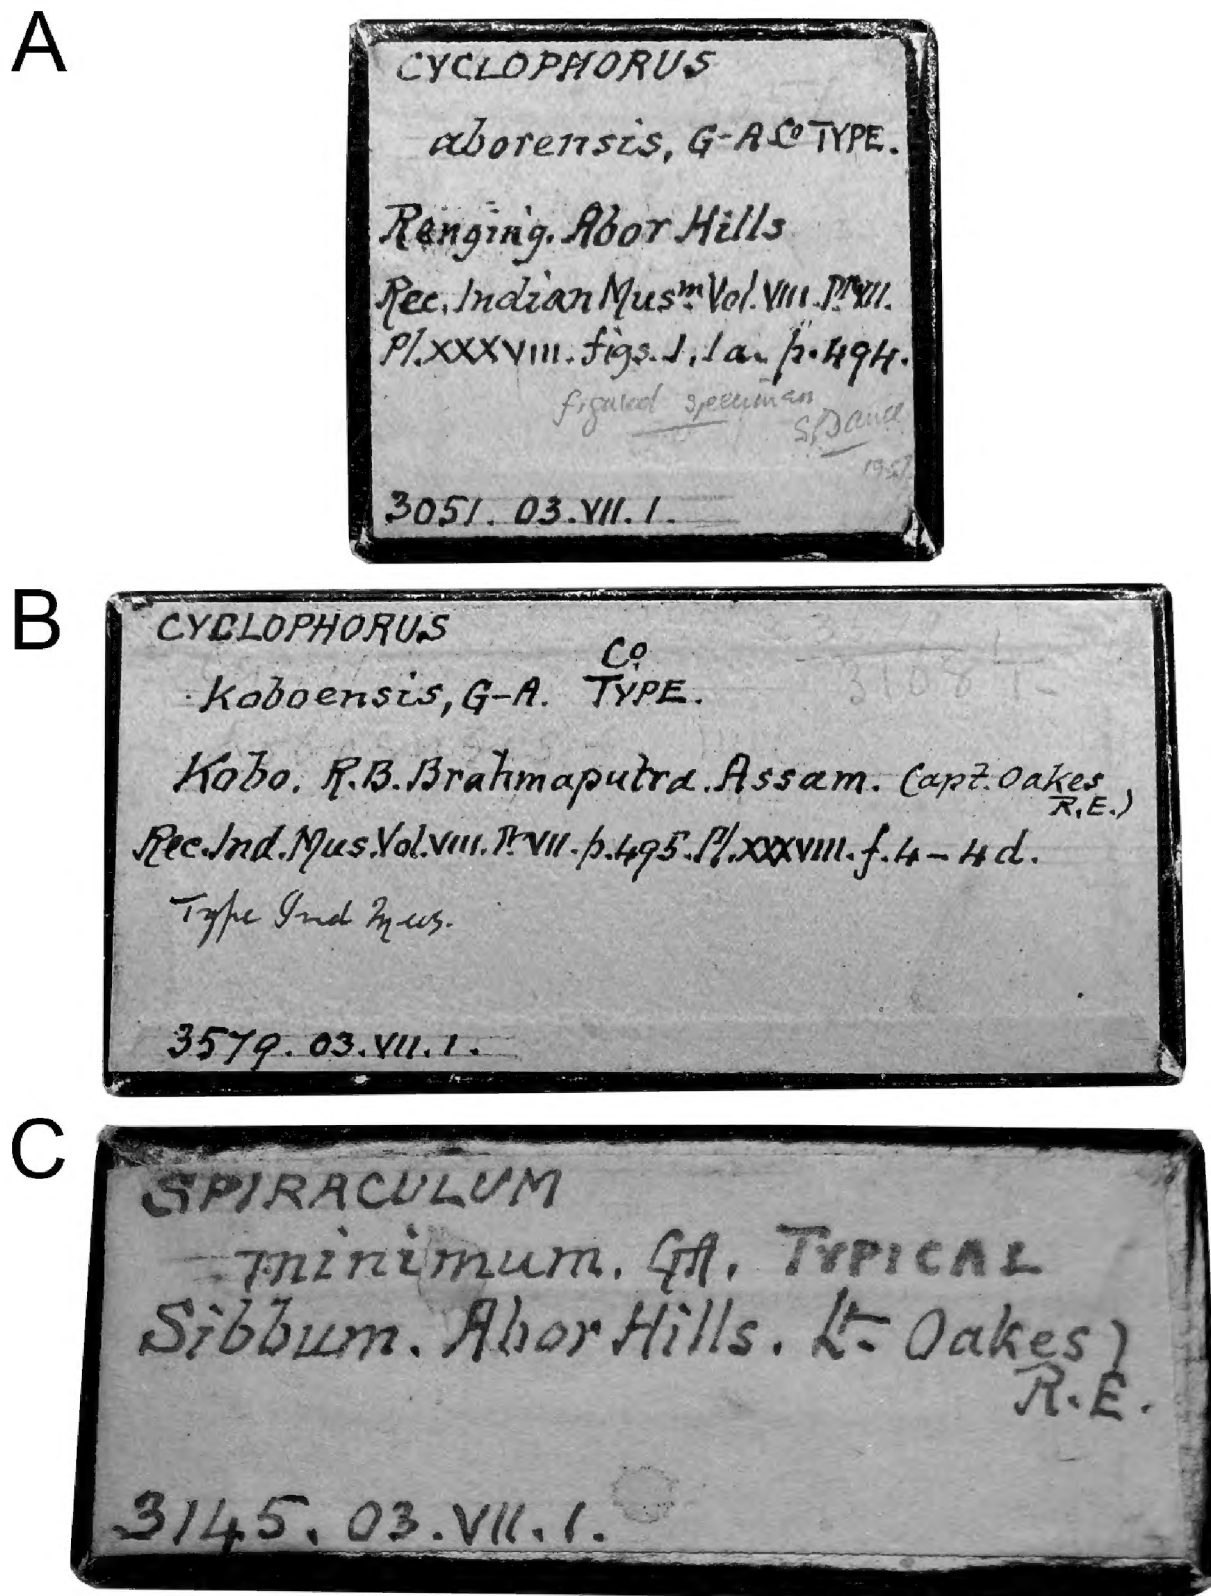 A
CYCLOPHORUS
aborensis, G-A Co TYPE.
Renging. Abor Hills
Rec. Indian Musm. Vol. VIII. Pt. VII.
Pl. XXXVIII. figs. 1, 1a. p. 494.
figured specimen
S P Dance
195
3051. 03. VII. 1.
B
CYCLOPHORUS
Co
koboensis, G-A. TYPE.
Kobo. R.B. Brahmaputra. Assam. (Capt. Oakes
R.E.)
Rec. Ind. Mus. Vol. VIII. Pt. VII. p. 495. Pl. XXXVIII. f. 4-4d.
Type Ind Mus.
3579. 03. VII. 1.
C
SPIRACULUM
minimum. GA. TYPICAL
Sibbum. Abor Hills. Lt. Oakes)
R.E.
3145. 03. VII. 1.